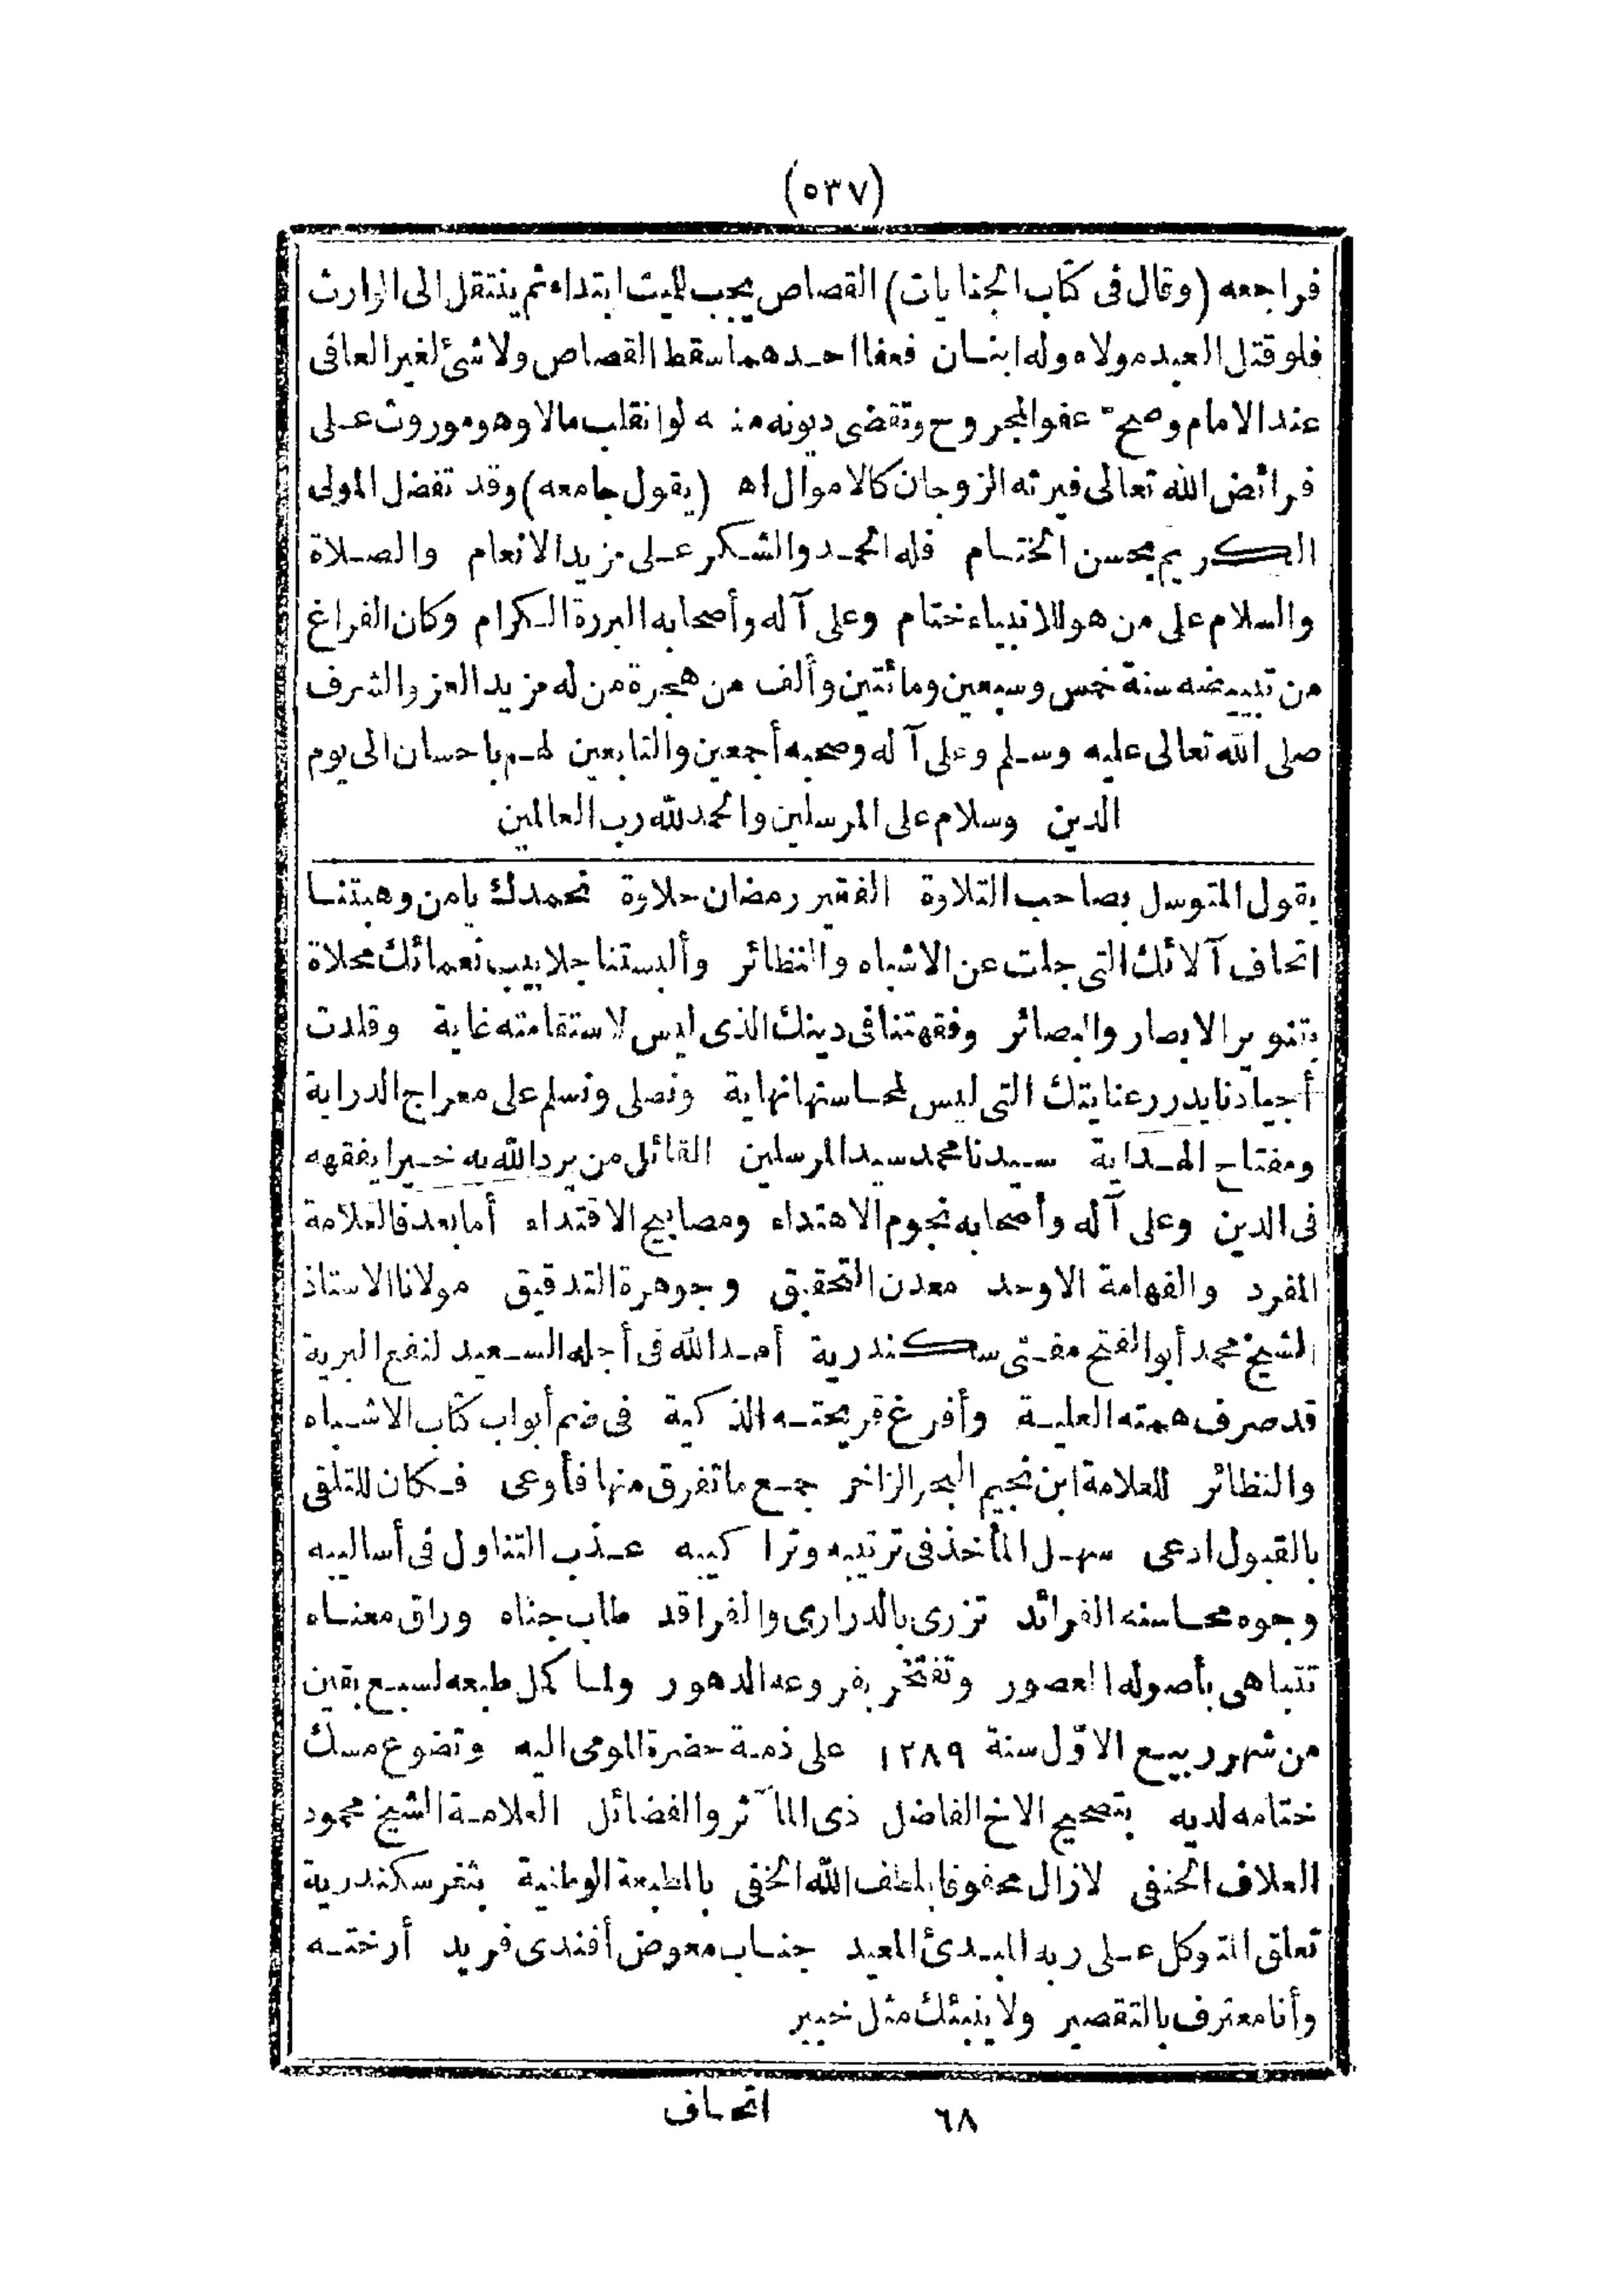 (٥٣٧)
فراجعه (وقال فى كتاب الجنايات) القصاص يجب لليت ابتداء ثم ينتقل الى الوارث
فلو قتل العبد مولاه وله ابنان فعفا احدهما سقط القصاص ولا شئ لغير العافى
عند الامام وصح عفو المجروح وتقضى ديونه منه لو انقلب مالا وهو موروث على
فرائض الله تعالى فيرثه الزوجان كالاموال اه (يقول جامعه) وقد تفضل المولى
الكريم بحسن الختام فله الحمد والشكر على مزيد الانعام والصلاة
والسلام على من هو للانبياء ختام وعلى آله وأصحابه البررة الكرام وكان الفراغ
من تبييضه سنة خمس وسبعين ومائتين وألف من هجرة من له مزيد العز والشرف
صلى الله تعالى عليه وسلم وعلى آله وصحبه أجمعين والتابعين لهم باحسان الى يوم
الدين وسلام على المرسلين والحمد لله رب العالمين
يقول المتوسل بصاحب التلاوة الفقير رمضان حلاوة نحمدك يا من وهبتنا
اتحاف آلائك التى جلت عن الاشباه والنظائر وألبستنا جلابيب نعمائك محلاة
بتنوير الابصار والبصائر وفقهتنا فى دينك الذى ليس لاستقامته غاية وقلدت
أجيادنا بدرر عنايتك التى ليس لمحاسنها نهاية ونصلى ونسلم على معراج الدراية
ومفتاح الهداية سيدنا محمد سيد المرسلين القائل من يرد الله به خيرا يفقهه
فى الدين وعلى آله وأصحابه نجوم الاهتداء ومصابيح الاقتداء أما بعد فالعلامة
المفرد والفهامة الاوحد معدن التحقيق وجوهرة التدقيق مولانا الاستاذ
الشيخ محمد أبو الفتح مفتى سكندرية أمد الله فى أجله السعيد لنفع البرية
قد صرف همته العلية وأفرغ قريحته الذكية فى ضم أبواب كتاب الاشباه
والنظائر للعلامة ابن نجيم البحر الزاخر جمع ما تفرق منها فأوعى فكان للتلقى
بالقبول ادعى سهل المأخذ فى ترتيبه وتراكيبه عذب التناول فى أساليبه
وجوه محاسنه الفرائد تزرى بالدرارى والفراقد طاب جناه وراق معناه
تتباهى بأصوله العصور وتفتخر بفروعه الدهور ولما كمل طبعه لسبع بقين
من شهر ربيع الاوّل سنة ١٢٨٩ على ذمة حضرة المومى اليه وتضوع مسك
ختامه لديه بتصحيح الاخ الفاضل ذى المآثر والفضائل العلامة الشيخ محمود
العلاف الحنفى لازال محفوفا بلطف الله الخفى بالمطبعة الوطنية بثغر سكندرية
تعلق المتوكل على ربه المبدئ المعيد جناب معوض أفندى فريد أرخته
وأنا معترف بالتقصير ولا ينبئك مثل خبير
٦٨ اتحاف